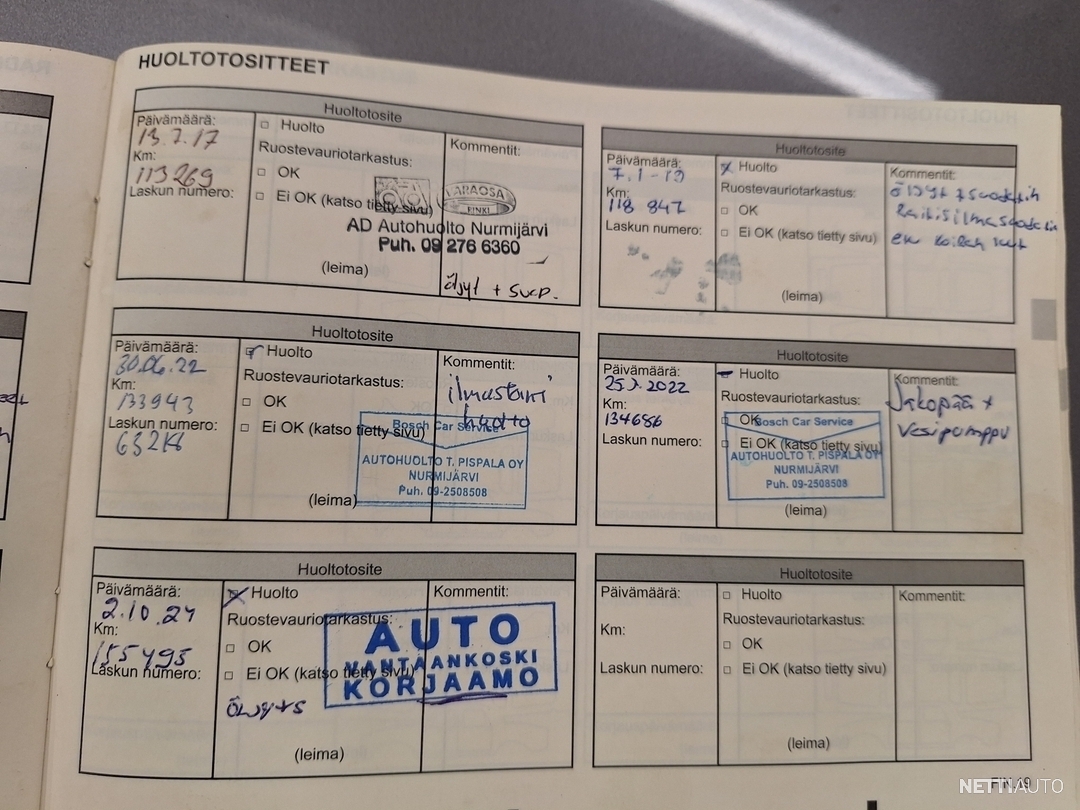 HUOLTOTOSITTEET
Huoltotosite
Päivämäärä:
13.7.17
Km:
113269
Laskun numero:
Huolto
Ruostevauriotarkastus:
OK
Ei OK (katso tietty sivu)
(leima)
Kommentit:
VARAOSA
AD Autohuolto Nurmijärvi
Puh. 09 276 6360
öljyt + suod.
Huoltotosite
Päivämäärä:
7.1-19
Km:
118 847
Laskun numero:
Huolto
Ruostevauriotarkastus:
OK
Ei OK (katso tietty sivu)
(leima)
Kommentit:
Huoltotosite
Päivämäärä:
30.06.22
Km:
133943
Laskun numero:
Huolto
Ruostevauriotarkastus:
OK
Ei OK (katso tietty sivu)
(leima)
Kommentit:
huolto
Bosch Car Service
AUTOHUOLTO T. PISPALA OY
NURMIJÄRVI
Puh. 09-2508508
Huoltotosite
Päivämäärä:
25.7.2022
Km:
134686
Laskun numero:
Huolto
Ruostevauriotarkastus:
OK
Ei OK (katso tietty sivu)
(leima)
Kommentit:
Jakopää +
Vesipumppu
Bosch Car Service
AUTOHUOLTO T. PISPALA OY
NURMIJÄRVI
Puh. 09-2508508
Huoltotosite
Päivämäärä:
2.10.24
Km:
155495
Laskun numero:
Huolto
Ruostevauriotarkastus:
OK
Ei OK (katso tietty sivu)
(leima)
Kommentit:
AUTO
VANTAANKOSKI
KORJAAMO
Huoltotosite
Päivämäärä:
Km:
Laskun numero:
Huolto
Ruostevauriotarkastus:
OK
Ei OK (katso tietty sivu)
(leima)
Kommentit:
FIN.19
NETTIAUTO